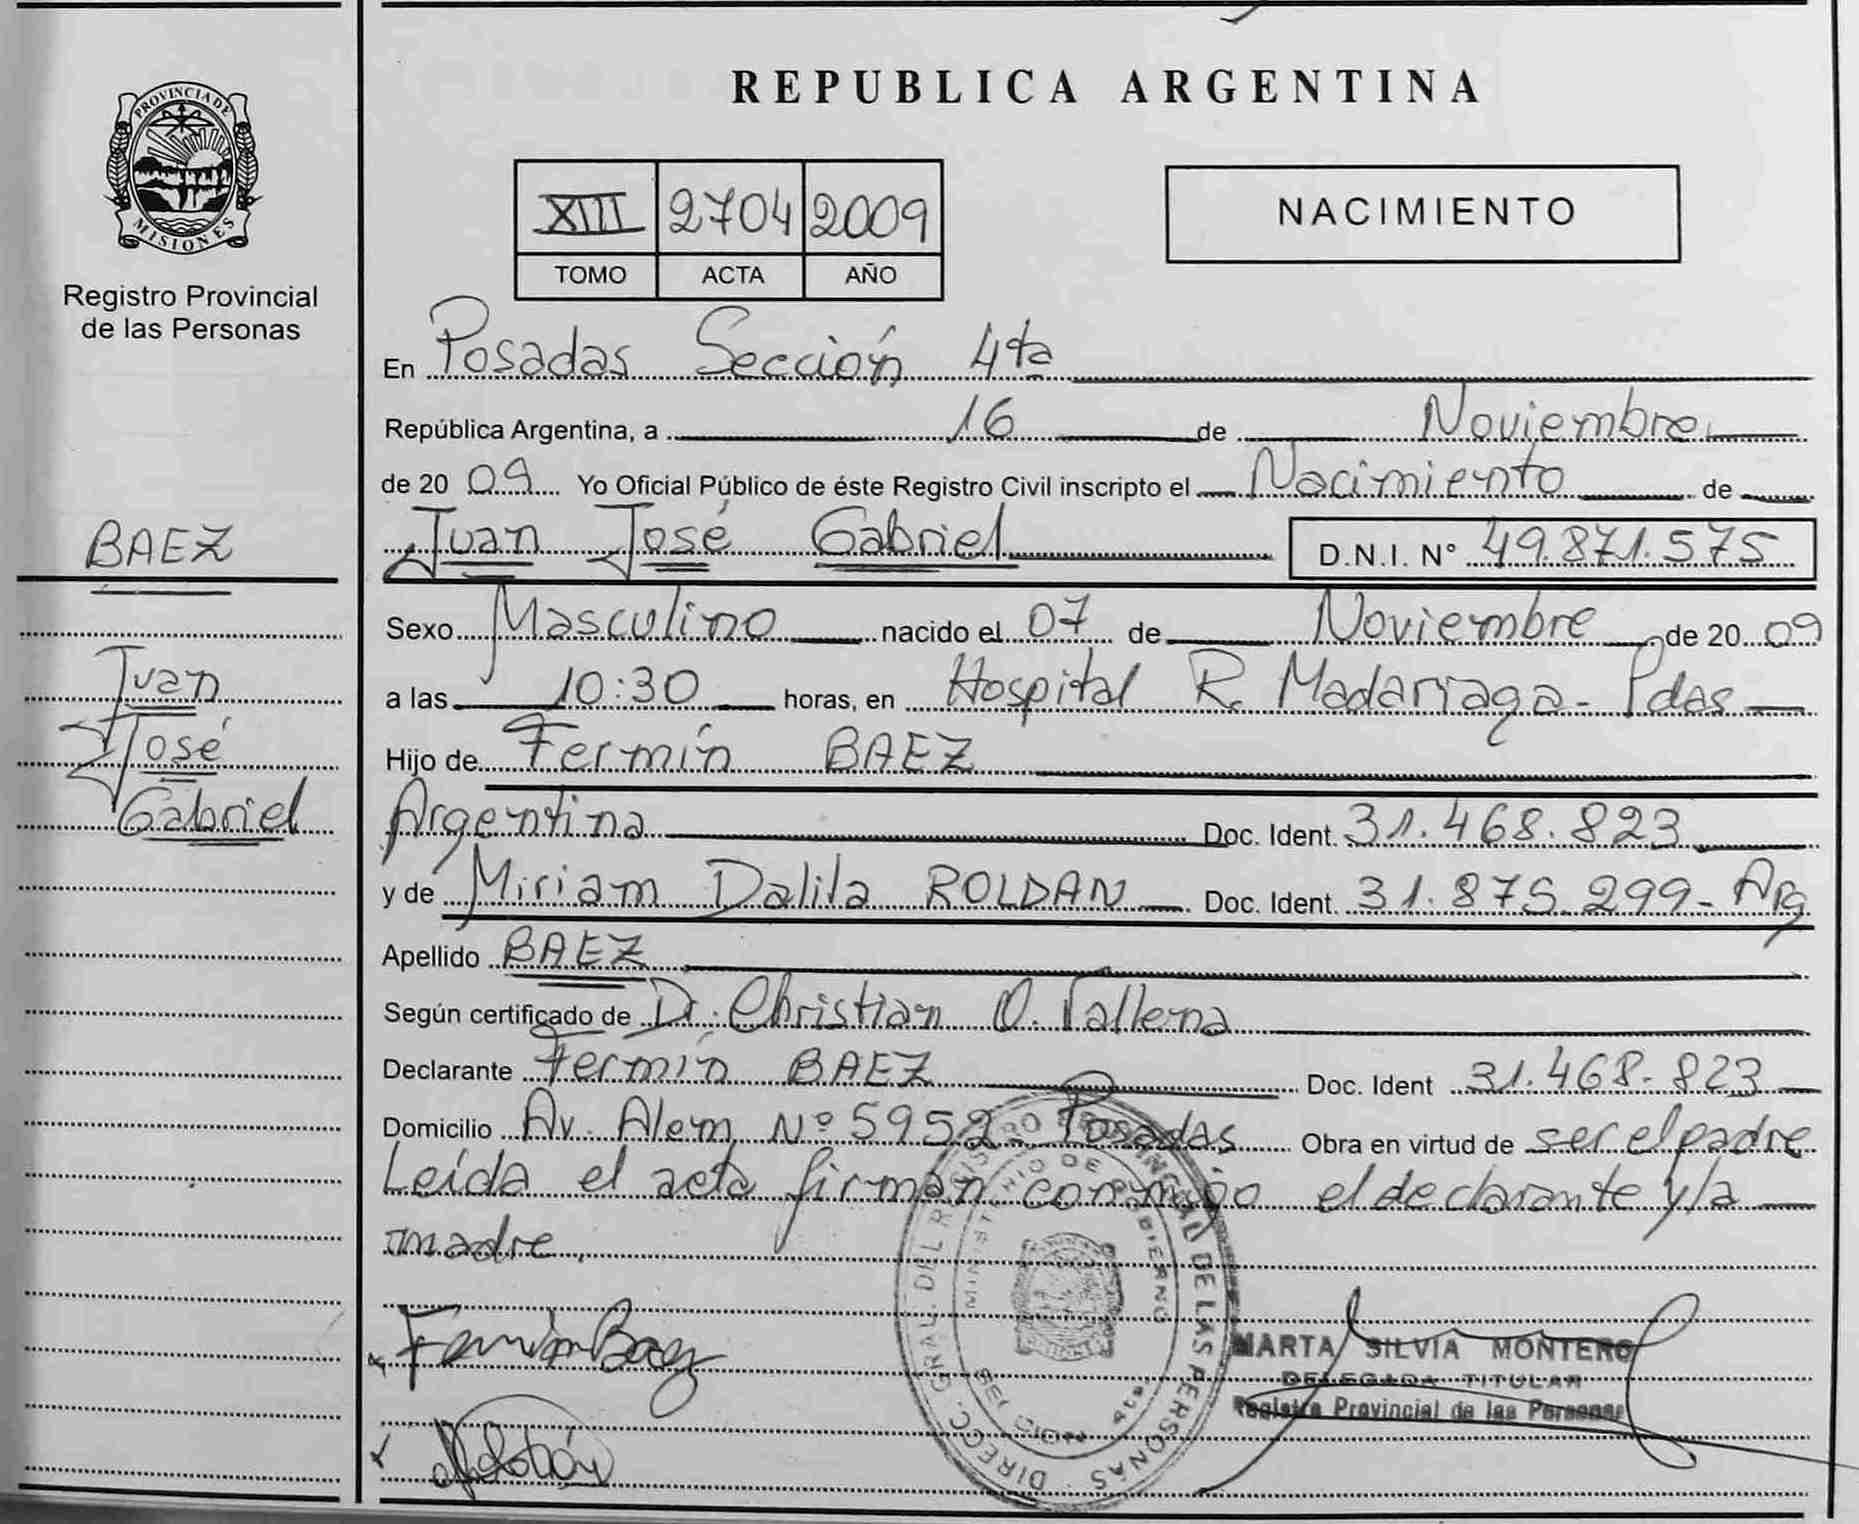 PROVINCIA DE
MISIONES
Registro Provincial
de las Personas
BAEZ
Juan
José
Gabriel
REPUBLICA ARGENTINA
XIII 2704 2009
TOMO ACTA AÑO
NACIMIENTO
En Posadas Sección 4ta
República Argentina, a 16 de Noviembre
de 2009 Yo Oficial Público de éste Registro Civil inscripto el Nacimiento de
Juan José Gabriel D.N.I. N° 49.871.575
Sexo Masculino nacido el 07 de Noviembre de 2009
a las 10:30 horas, en Hospital R. Madariaga - Pdas
Hijo de Fermín BAEZ
Argentina Doc. Ident. 31.468.823
y de Miriam Dalila ROLDAN Doc. Ident. 31.875.299 - Arg
Apellido BAEZ
Según certificado de Dr. Christian O. Vallena
Declarante Fermín BAEZ Doc. Ident 31.468.823
Domicilio Av. Alem Nº 5952 - Posadas Obra en virtud de ser el padre
Leída el acta firman conmigo el declarante y la
madre.
Fermin Baez
MARTA SILVIA MONTERO
DELEGADA TITULAR
Registro Provincial de las Personas
DIRECC. GRAL. DEL REGISTRO PROVINCIAL DE LAS PERSONAS
MINISTERIO DE GOBIERNO
SECCION 4ta.